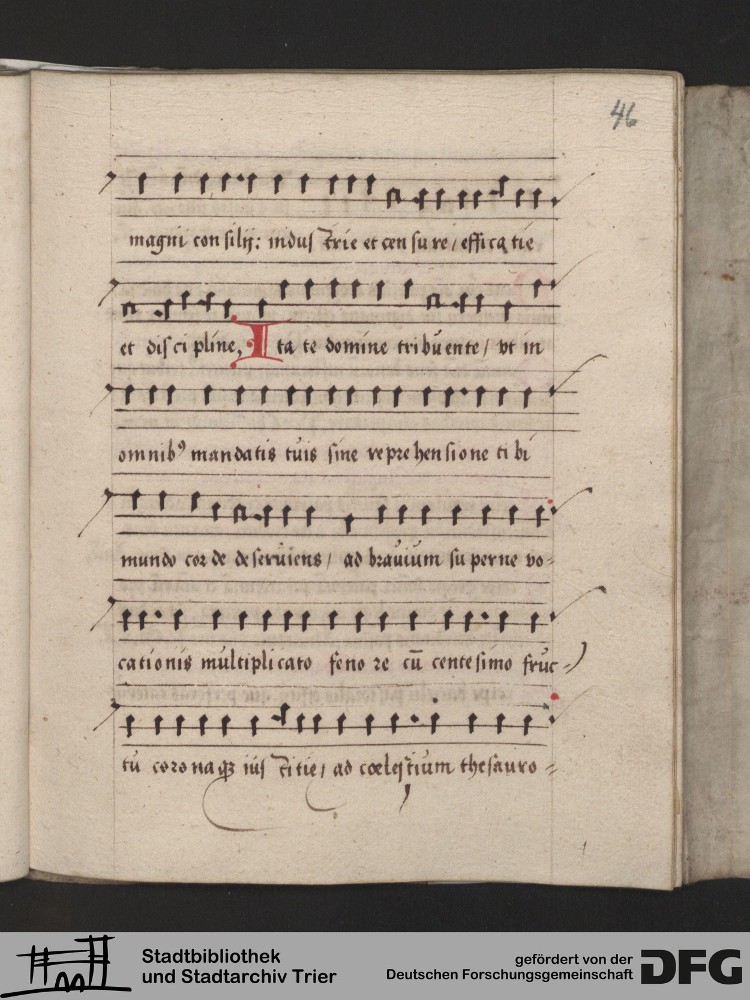 46
magni con silij: indus trie et cen su re, effica tie
et dis ci pline, Ita te domine tribuente, vt in
omnibꝰ mandatis tuis sine reprehensione tibi
mundo cor de deseruiens, ad brauium su perne vo=
cationis multiplicato feno re cū centesimo fruc=
tu corona qȝ ius titie, ad coelestium thesauro=
Stadtbibliothek
und Stadtarchiv Trier
gefördert von der
Deutschen Forschungsgemeinschaft
DFG